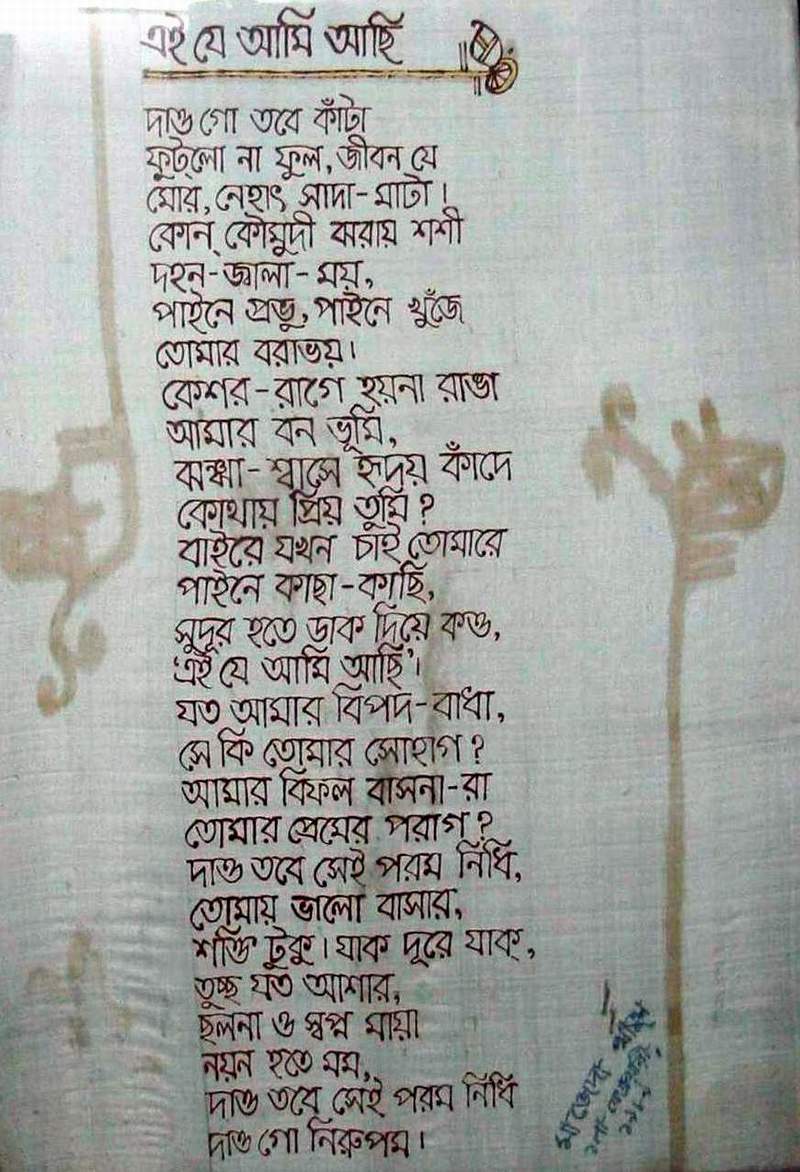 এই যে আমি আছি
দাও গো তবে কাঁটা
ফুট্‌লো না ফুল, জীবন যে
মোর, নেহাৎ সাদা-মাটা।
কোন্ কৌমুদী ঝরায় শশী
দহন-জ্বালা-ময়,
পাইনে প্রভু, পাইনে খুঁজে
তোমার বরাভয়।
কেশর-রাগে হয়না রাঙা
আমার বন ভূমি,
ঝঞ্ঝা-শ্বাসে হৃদয় কাঁদে
কোথায় প্রিয় তুমি?
বাইরে যখন চাই তোমারে
পাইনে কাছা-কাছি,
সুদূর হতে ডাক দিয়ে কও,
'এই যে আমি আছি'।
যত আমার বিপদ-বাধা,
সে কি তোমার সোহাগ?
আমার বিফল বাসনা-রা
তোমার প্রেমের পরাগ?
দাও তবে সেই পরম নিধি,
তোমায় ভালো বাসার,
শক্তি টুকু। যাক দূরে যাক্,
তুচ্ছ যত আশার,
ছলনা ও স্বপ্ন মায়া
নয়ন হতে মম,
দাও তবে সেই পরম নিধি
দাও গো নিরুপম।